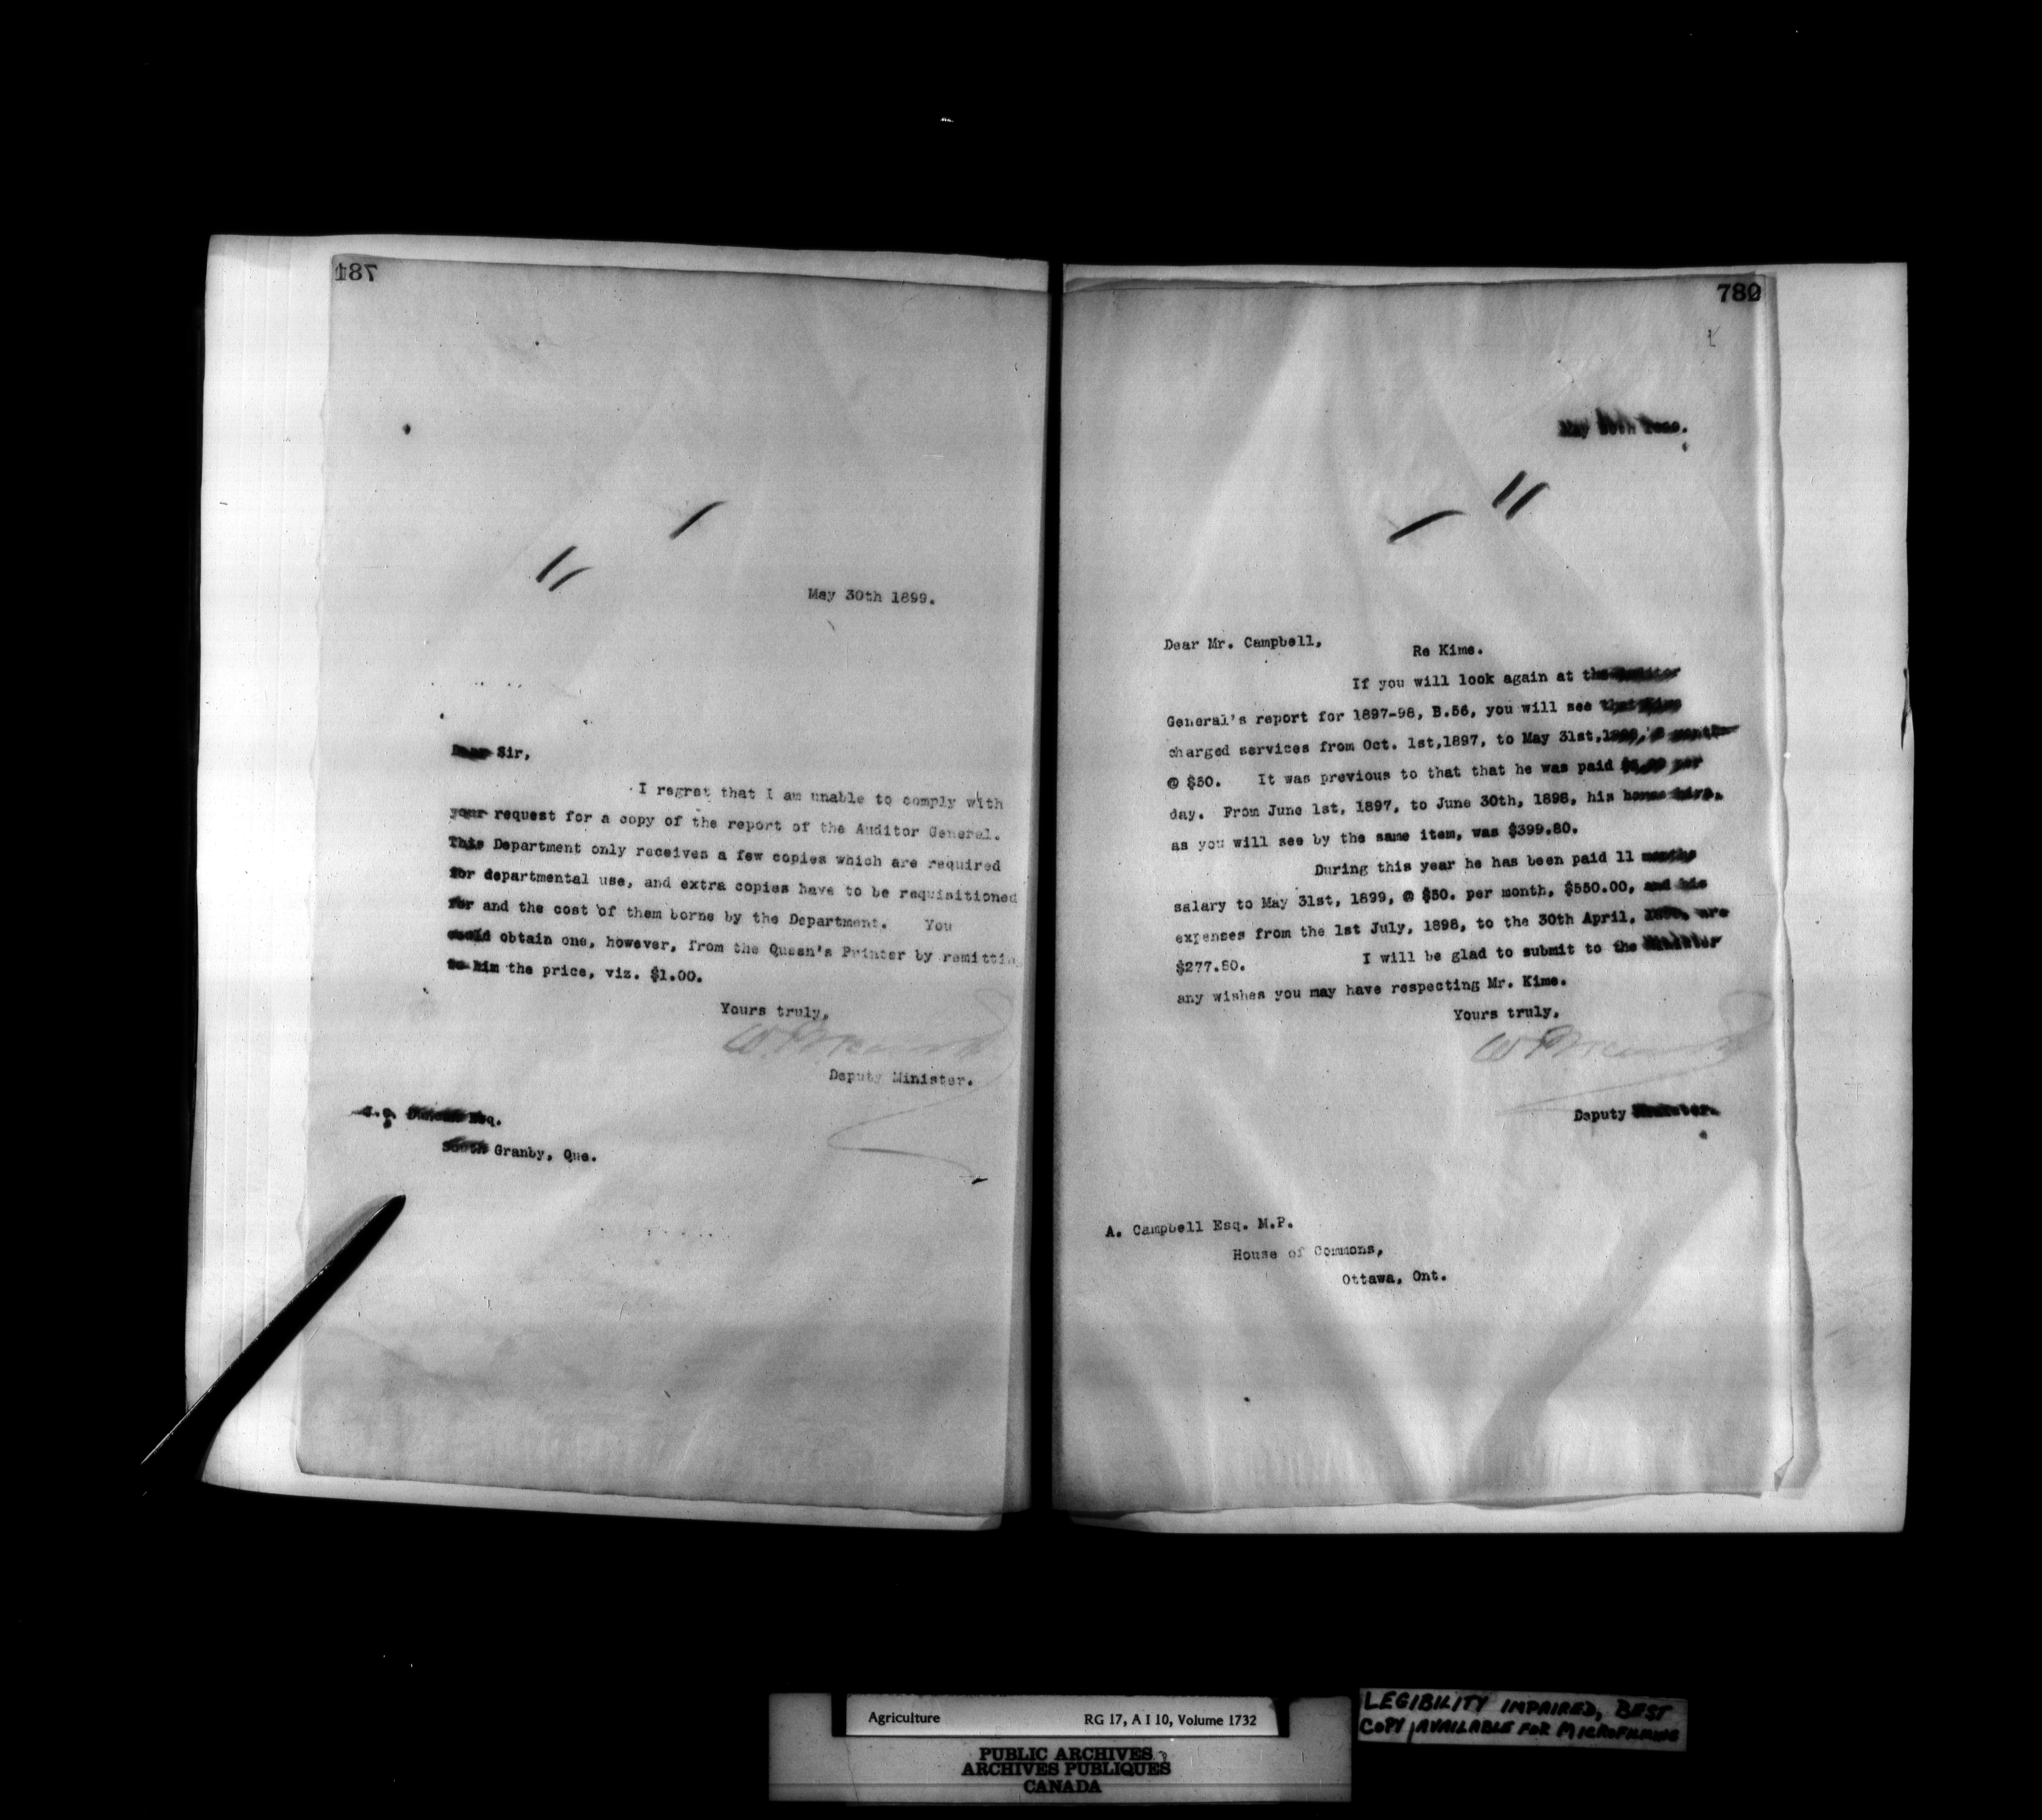 781
May 30th 1899.
Dear Sir,
I regret that I am unable to comply with
your request for a copy of the report of the Auditor General.
This Department only receives a few copies which are required
for departmental use, and extra copies have to be requisitioned
for and the cost of them borne by the Department. You
could obtain one, however, from the Queen's Printer by remittin
to him the price, viz. $1.00.
Yours truly,
Deputy Minister.
Esq.
South Granby, Que.
May 30th
Dear Mr. Campbell,
Re Kime.
If you will look again at the Auditor
General's report for 1897-98, B.56, you will see that Kime
charged services from Oct. 1st,1897, to May 31st,
@ $50. It was previous to that that he was paid per
day. From June 1st, 1897, to June 30th, 1898, his horse hire,
as you will see by the same item, was $399.80.
During this year he has been paid 11 months
salary to May 31st, 1899, @ $50. per month, $550.00, and his
expenses from the 1st July, 1898, to the 30th April, are
$277.80. I will be glad to submit to the Minister
any wishes you may have respecting Mr. Kime.
Yours truly,
Deputy Minister.
A. Campbell Esq. M.P.
House of Commons,
Ottawa, Ont.
Agriculture RG 17, A I 10, Volume 1732
PUBLIC ARCHIVES
ARCHIVES PUBLIQUES
CANADA
LEGIBILITY IMPAIRED, BEST
COPY AVAILABLE FOR MICROFILMING